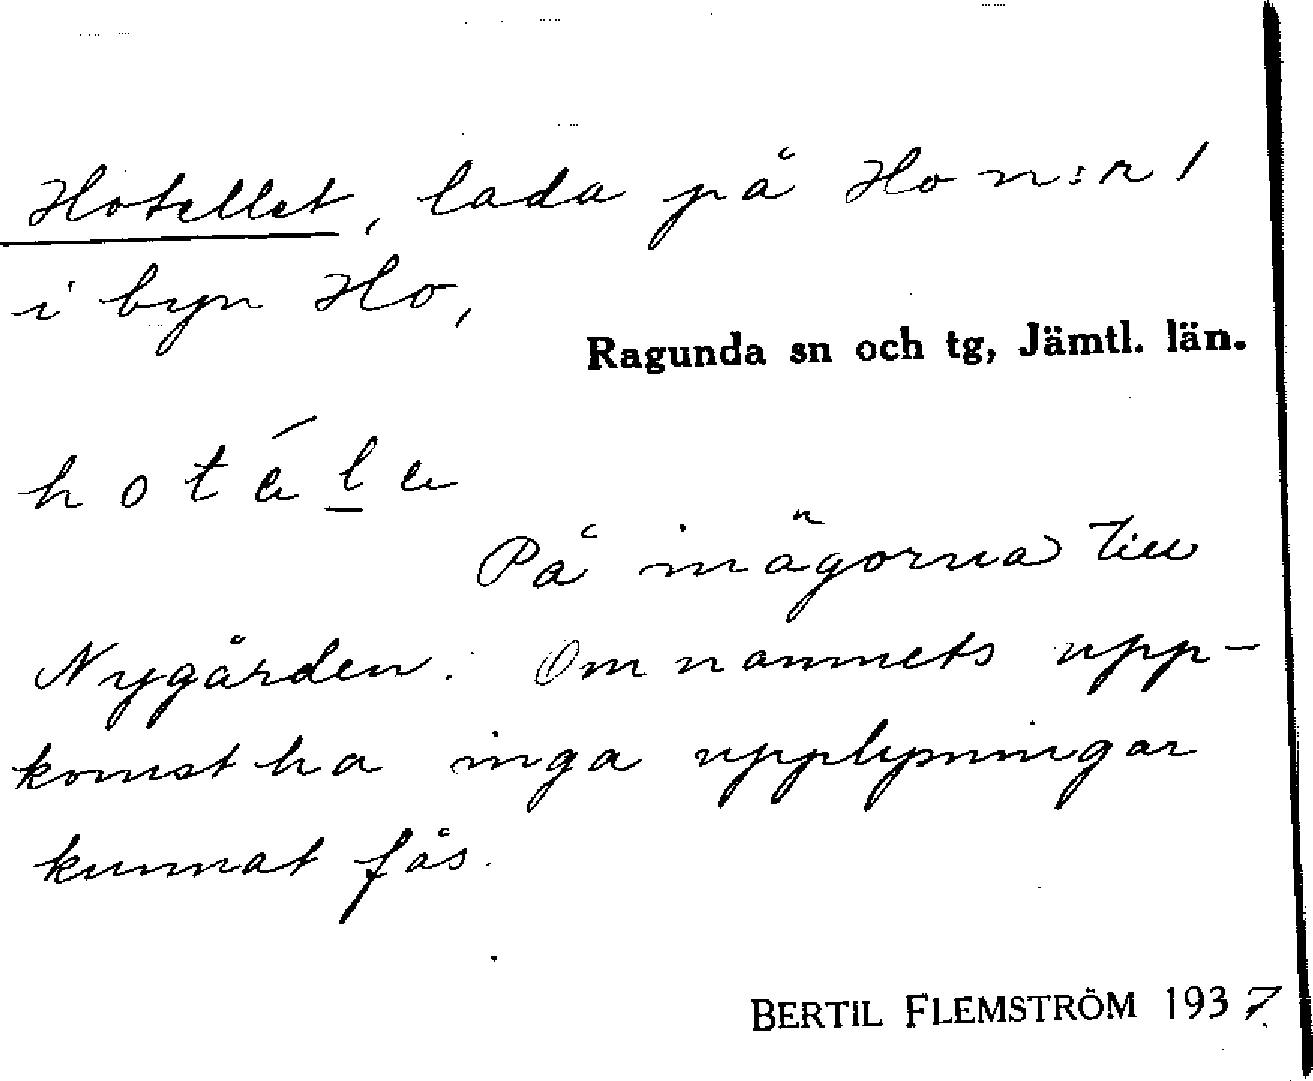 Hotellet, lada på Ho n:r 1
i byn Ho,
Ragunda sn och tg, Jämtl. län.
h o t é l e
På inägorna till
Nygården. Om namnets upp-
komst ha inga upplysningar
kunnat fås.
BERTIL FLEMSTRÖM 1937